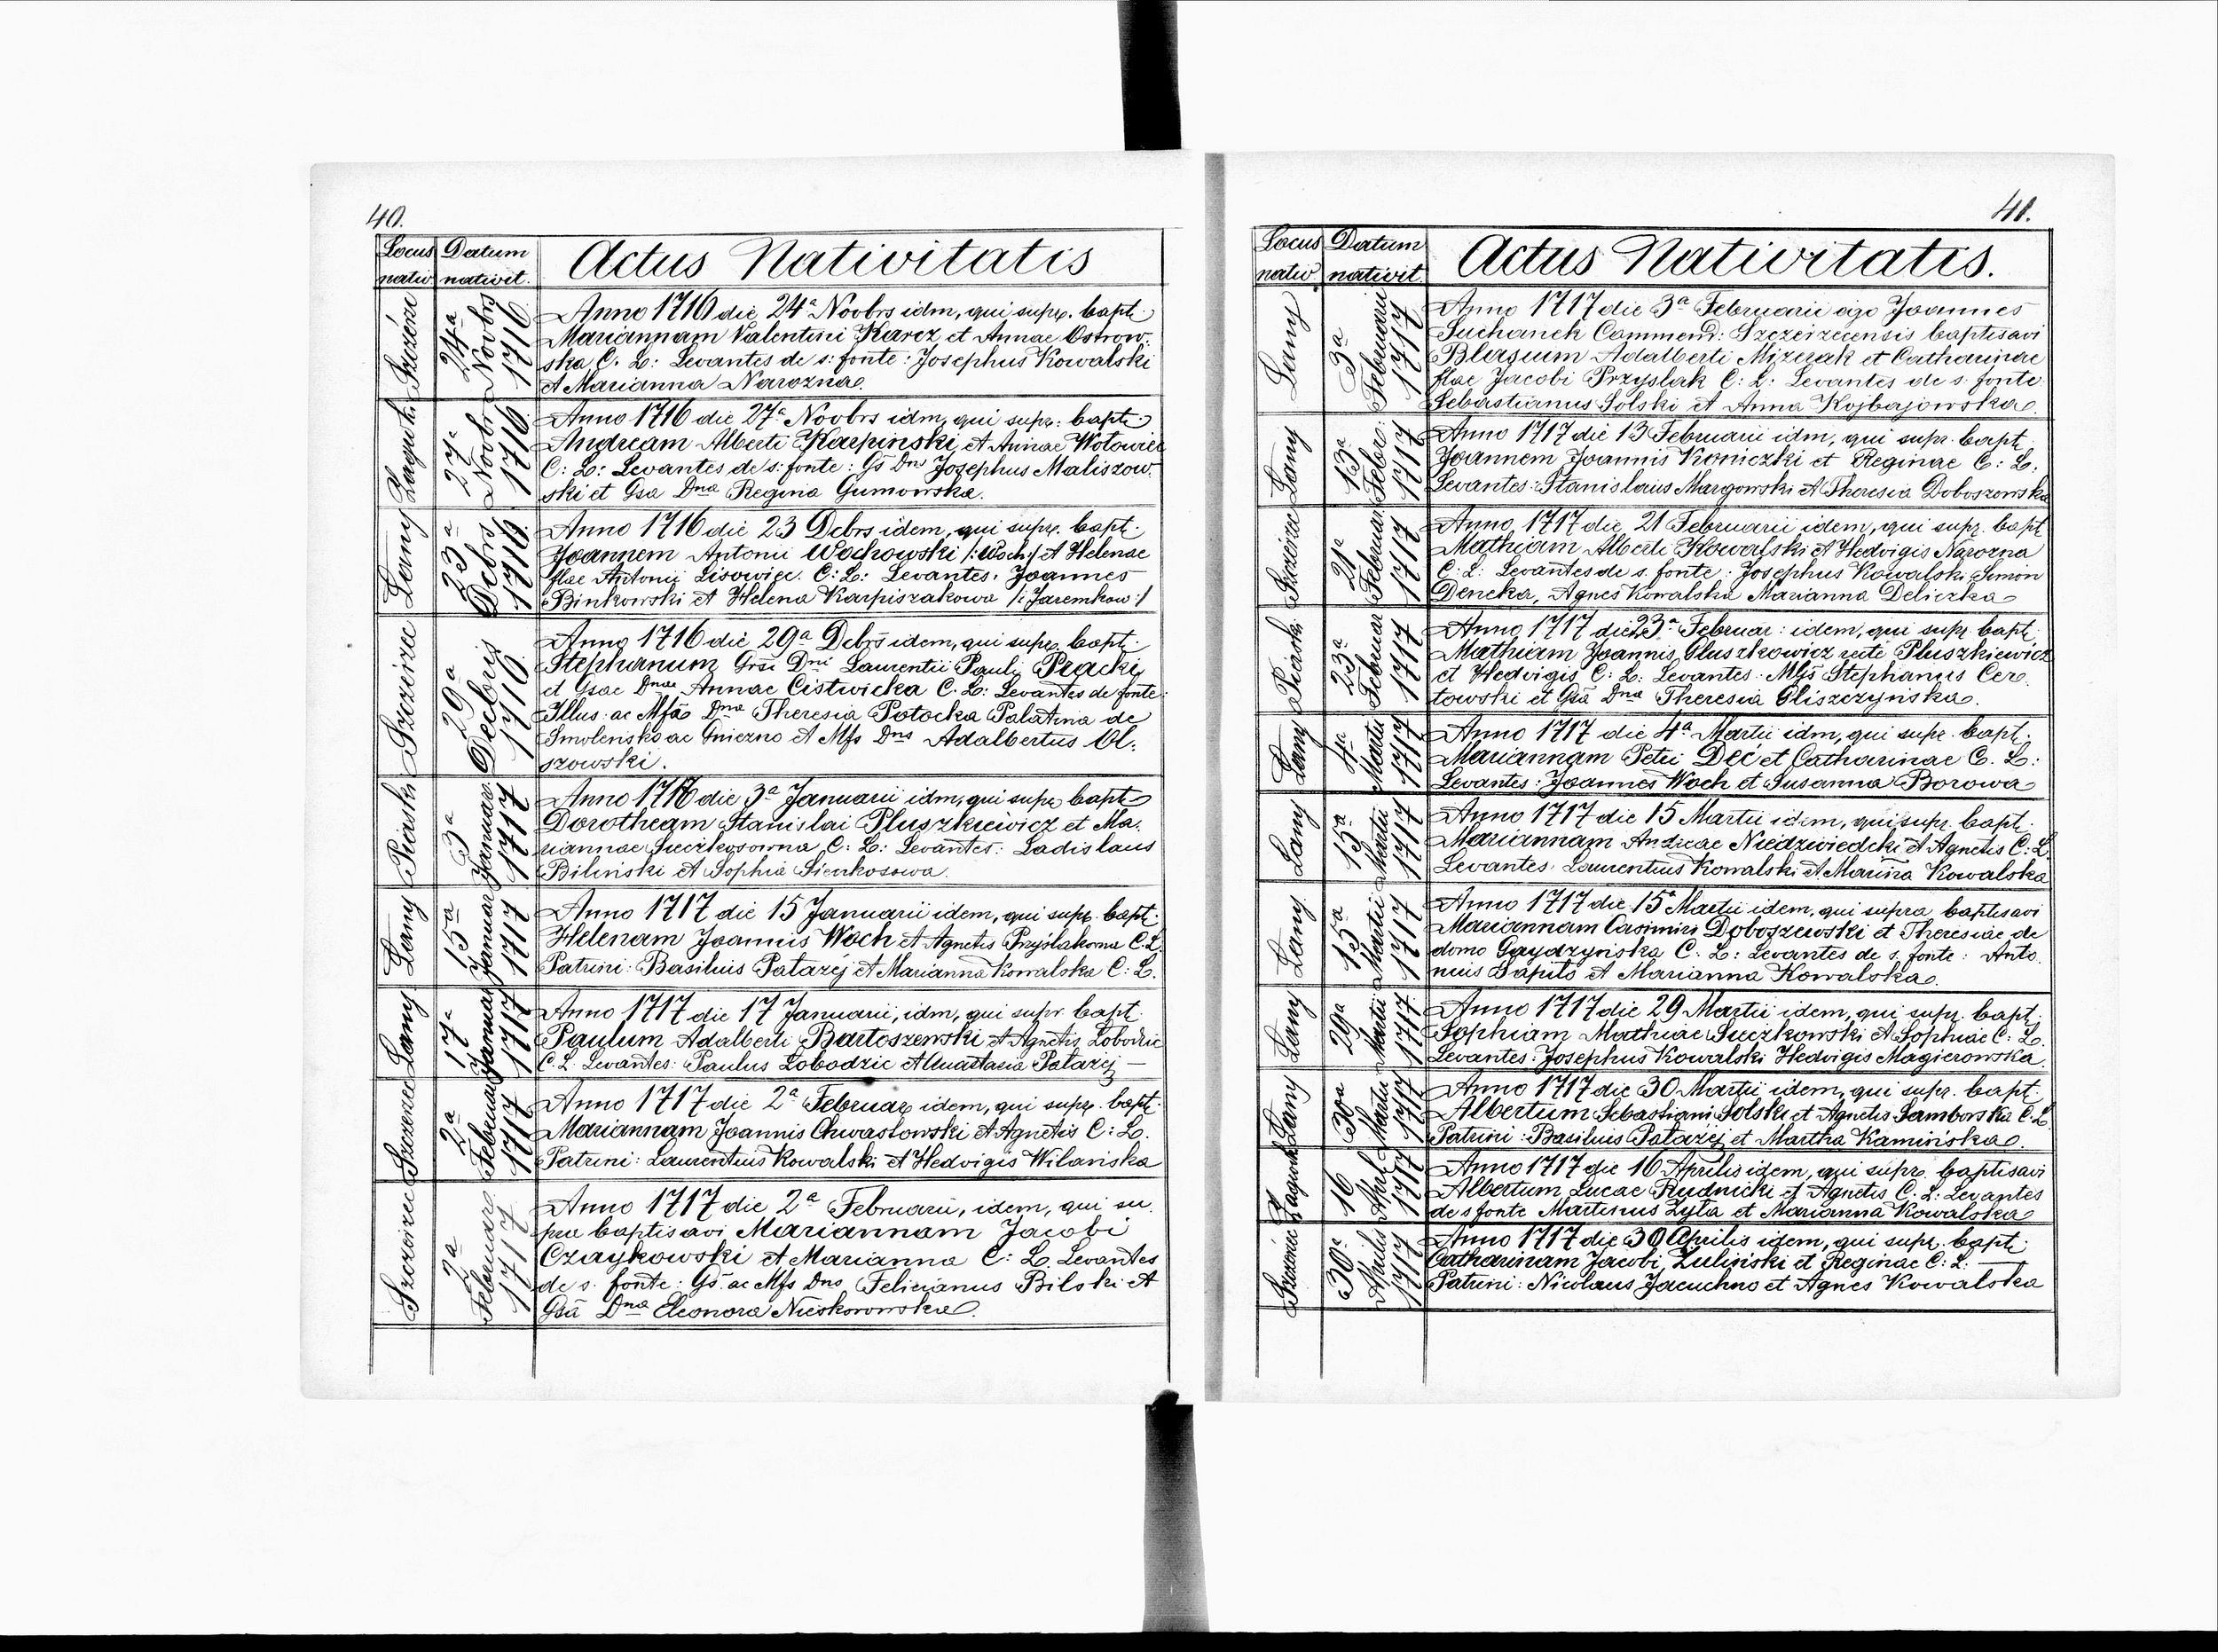 40.
Locus nativ. Datum nativit. Actus Nativitatis
Szczérzé 24ª Novbrs 1716
Anno 1716 die 24ª Novbrs idm, qui supr. bapt.
Mariannam Valentini Karcz et Annae Ostrow-
ska C. L: Levantes de s: fonte: Josephus Kowalski
et Marianna Narozna.
27ª Novbr 1716
Anno 1716 die 27ª Novbrs idm, qui supr: bapt:
Andream Alberti Karpinski et Annae Wołowiec
C: L: Levantes de s: fonte: Gs Dns Josephus Maliszow-
ski et Gsa Dna Regina Gumowska.
Łany 23ª Debrs 1716
Anno 1716 die 23 Debrs idem, qui supr. bapt:
Joannem Antonii Wochowski /: Woch :/ et Helenae
flae Antonii Lisowiec. C: L: Levantes: Joannes
Binkowski et Helena Karpiszakowa /: Jaremkow :/
Szczeirzec 29ª Decbris 1716
Anno 1716 die 29ª Debrs idem, qui supr. bapt:
Stephanum Grsi Dni Laurentii Pauli Pracki
et Gsae Dnae Annae Cistwicka C. L: Levantes de fonte:
Illus: ac Mfa Dna Theresia Potocka Palatina de
Smolensko ac Gniezno et Mfs Dns Adalbertus Ol-
szowski.
Piaski 3ª Januar 1717
Anno 1717 die 3ª Januarii idm, qui supr bapt
Dorotheam Stanislai Pluszkiewicz et Ma-
riannae Sieczkosowna C: L: Levantes: Ladislaus
Biliński et Sophia Sienkosowa.
Łany 15ª Januar 1717
Anno 1717 die 15 Januarii idem, qui supr. bapt:
Helenam Joannis Woch et Agnetis Przyslakowa C. L.
Patrini: Basilius Patazéj et Marianna Kowalska C: L.
Łany 17ª Januar 1717
Anno 1717 die 17 Januarii, idm, qui supr. bapt
Paulum Adalberti Bartoszewski et Agnetis Łobodzic
C. L. Levantes: Paulus Łobodzic et Anastasia Patazej —
Szczérzec 2ª Februar 1717
Anno 1717 die 2ª Februar idem, qui supr. bapt:
Mariannam Joannis Chwastowski et Agnetis C: L.
Patrini: Laurentius Kowalski et Hedvigis Wilańska
Szczeirzec 2ª Februar 1717
Anno 1717 die 2ª Februarii, idem, qui su-
pra baptisavi Mariannam Jacobi
Czaykowski et Marianna C: L. Levantes
de s. fonte: Gs. ac Mfs Dns Felicianus Bilski et
Gsā Dna Eleonora Nieskorowska.
41.
Locus nativ. Datum nativit. Actus Nativitatis.
Łany 3ª Februarii 1717
Anno 1717 die 3ª Februarii ego Joannes
Suchanek Commend: Szczeirzecensis baptisavi
Blasium Adalberti Mizerak et Catharinae
flae Jacobi Przyslak C: L: Levantes de s: fonte
Sebastianus Solski et Anna Kojbajowska.
Łany 13ª Febr: 1717
Anno 1717 die 13 Februarii idm, qui supr. bapt.
Joannem Joannis Koniczki et Reginae C: L:
Levantes: Stanislaus Margowski et Theresia Doboszowska
Szczeirzec 21ª Februar 1717
Anno 1717 die 21 Februarii idem, qui supr. bapt
Mathiam Alberti Kowalski et Hedvigis Narozna
C: L: Levantes de s. fonte: Josephus Kowalski Simon
Dencka, Agnes Kowalska Marianna Deliczka
Piaski 23ª Februar 1717
Anno 1717 die 23ª Februar: idem, qui supr. bapt:
Mathiam Joannis Gluszkowicz recte Pluszkiewicz
et Hedvigis C: L: Levantes: Mfs Stephanus Cer-
towski et Gsā Dna Theresia Gliszczyńska.
Łany 4ª Martii 1717
Anno 1717 die 4ª Martii idm, qui supr. bapt.
Mariannam Petri Deć et Catharinae C. L:
Levantes: Joannes Woch et Susanna Borowa
Łany 15ª Martii 1717
Anno 1717 die 15 Martii idem, qui supr. bapt.
Mariannam Andreae Niedzwiedcki et Agnetis C: L
Levantes: Laurentius Kowalski et Marina Kowalska
Łany 15ª Martii 1717
Anno 1717 die 15ª Martii idem, qui supra baptisavi
Mariannam Casimiri Doboszewski et Theresiae de
domo Gaydzynska C. L: Levantes de s. fonte: Anto-
nius Sapito et Marianna Kowalska.
Łany 29ª Martii 1717
Anno 1717 die 29 Martii idem, qui supr. bapt:
Sophiam Mathiae Sieczkowski et Sophiae C: L.
Levantes: Josephus Kowalski Hedvigis Magierowska
Łany 30ª Martii 1717
Anno 1717 die 30 Martii idem, qui supr. bapt:
Albertum Sebastiani Solski et Agnetis Samborska C. L
Patrini: Basilius Patazéj et Martha Kamińska.
16 April 1717
Anno 1717 die 16 Aprilis idem, qui supra baptisavi
Albertum Lucae Rudnicki et Agnetis C. L: Levantes
de s fonte Martinus Zyta et Marianna Kowalska
Szczérzéc 30ª Aprilis 1717
Anno 1717 die 30 Aprilis idem, qui supr. bapt:
Catharinam Jacobi Zuliński et Reginae C: L: —
Patrini: Nicolaus Jacuchno et Agnes Kowalska